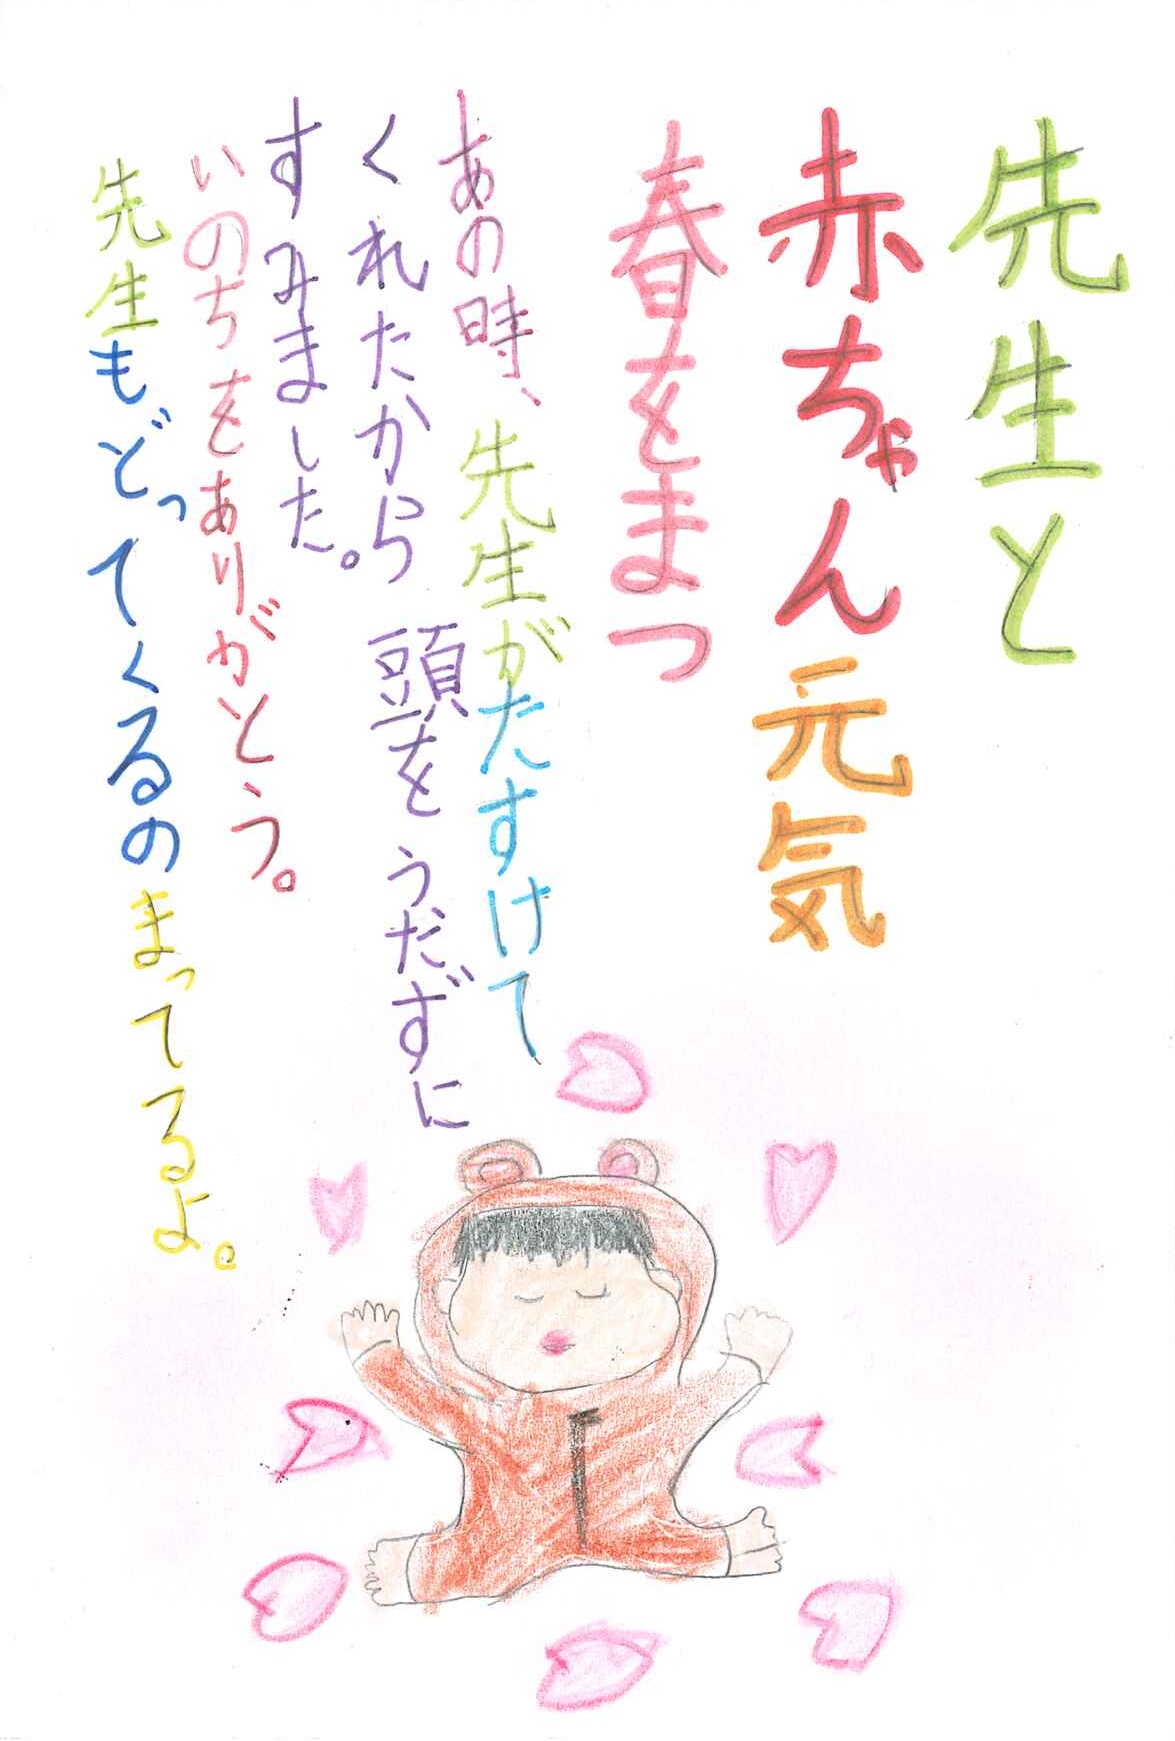 先生と
赤ちゃん元気
春をまつ
あの時、先生がたすけて
くれたから頭をうだずに
すみました。
いのちをありがとう。
先生もどってくるのまってるよ。